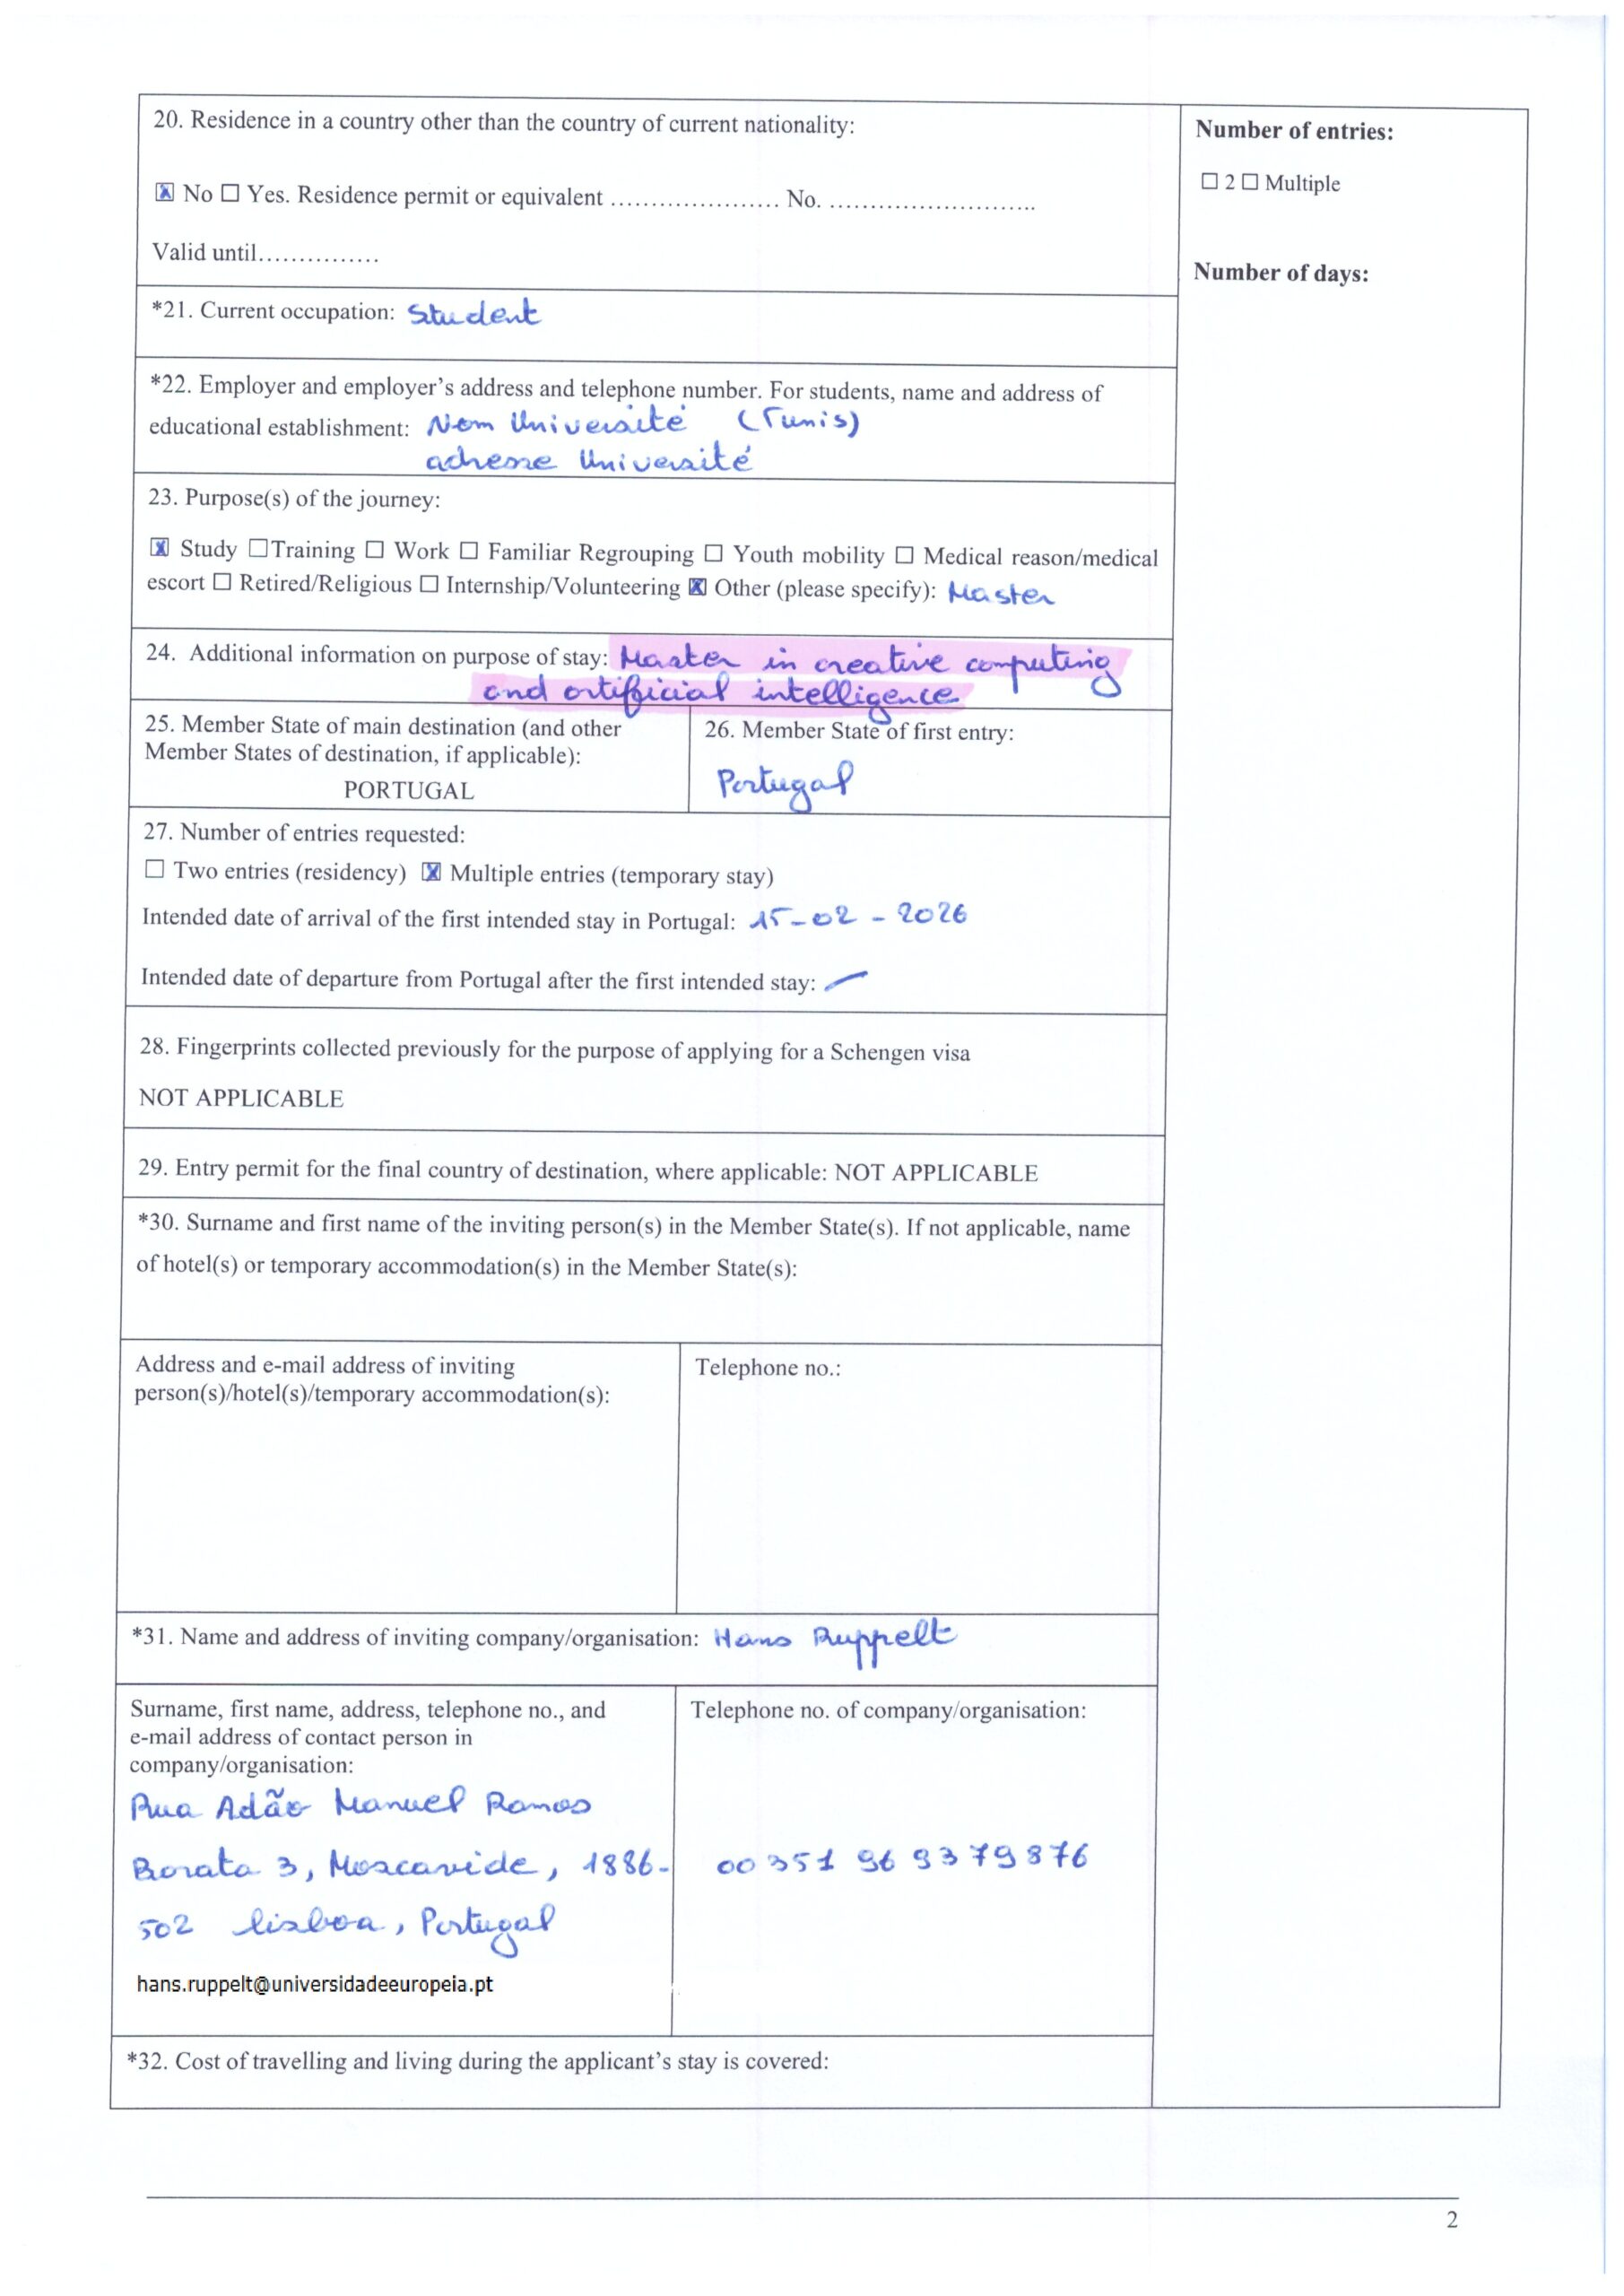 20. Residence in a country other than the country of current nationality:
☒ No ☐ Yes. Residence permit or equivalent ..................... No. ..........................
Valid until...............
Number of entries:
☐ 2 ☐ Multiple
Number of days:
*21. Current occupation: Student
*22. Employer and employer's address and telephone number. For students, name and address of
educational establishment: Nom Université (Tunis)
adresse Université
23. Purpose(s) of the journey:
☒ Study ☐Training ☐ Work ☐ Familiar Regrouping ☐ Youth mobility ☐ Medical reason/medical
escort ☐ Retired/Religious ☐ Internship/Volunteering ☒ Other (please specify): Master
24. Additional information on purpose of stay: Master in creative computing
and artificial intelligence
25. Member State of main destination (and other
Member States of destination, if applicable):
PORTUGAL
26. Member State of first entry:
Portugal
27. Number of entries requested:
☐ Two entries (residency) ☒ Multiple entries (temporary stay)
Intended date of arrival of the first intended stay in Portugal: 15-02-2026
Intended date of departure from Portugal after the first intended stay: –
28. Fingerprints collected previously for the purpose of applying for a Schengen visa
NOT APPLICABLE
29. Entry permit for the final country of destination, where applicable: NOT APPLICABLE
*30. Surname and first name of the inviting person(s) in the Member State(s). If not applicable, name
of hotel(s) or temporary accommodation(s) in the Member State(s):
Address and e-mail address of inviting
person(s)/hotel(s)/temporary accommodation(s):
Telephone no.:
*31. Name and address of inviting company/organisation: Hans Ruppelt
Surname, first name, address, telephone no., and
e-mail address of contact person in
company/organisation:
Rua Adão Manuel Ramos
Borata 3, Moscavide, 1886-
502 lisboa, Portugal
hans.ruppelt@universidadeeuropeia.pt
Telephone no. of company/organisation:
00 351 96 9379876
*32. Cost of travelling and living during the applicant's stay is covered:
2